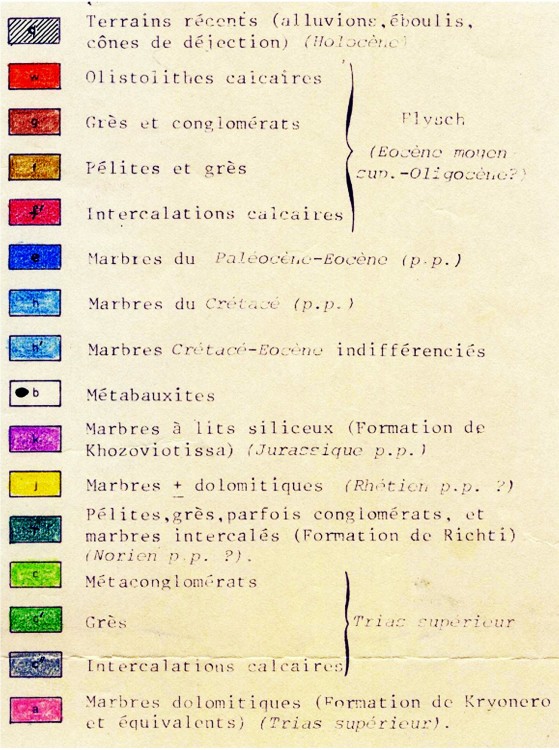 q Terrains récents (alluvions,éboulis,
cônes de déjection) (Holocène)
w Olistolithes calcaires
g Grès et conglomérats
Flysch
(Eocène moyen
sup.-Oligocène?)
f Pélites et grès
Intercalations calcaires
e Marbres du Paléocène-Eocène (p.p.)
h Marbres du Crétacé (p.p.)
h' Marbres Crétacé-Eocène indifférenciés
b Métabauxites
k Marbres à lits siliceux (Formation de
Khozoviotissa) (Jurassique p.p.)
j Marbres ± dolomitiques (Rhétien p.p. ?)
Pélites,grès,parfois conglomérats, et
marbres intercalés (Formation de Richti)
(Norien p.p. ?).
c Métaconglomérats
c' Grès
Trias supérieur
c" Intercalations calcaires
a Marbres dolomitiques (Formation de Kryonero
et équivalents) (Trias supérieur).